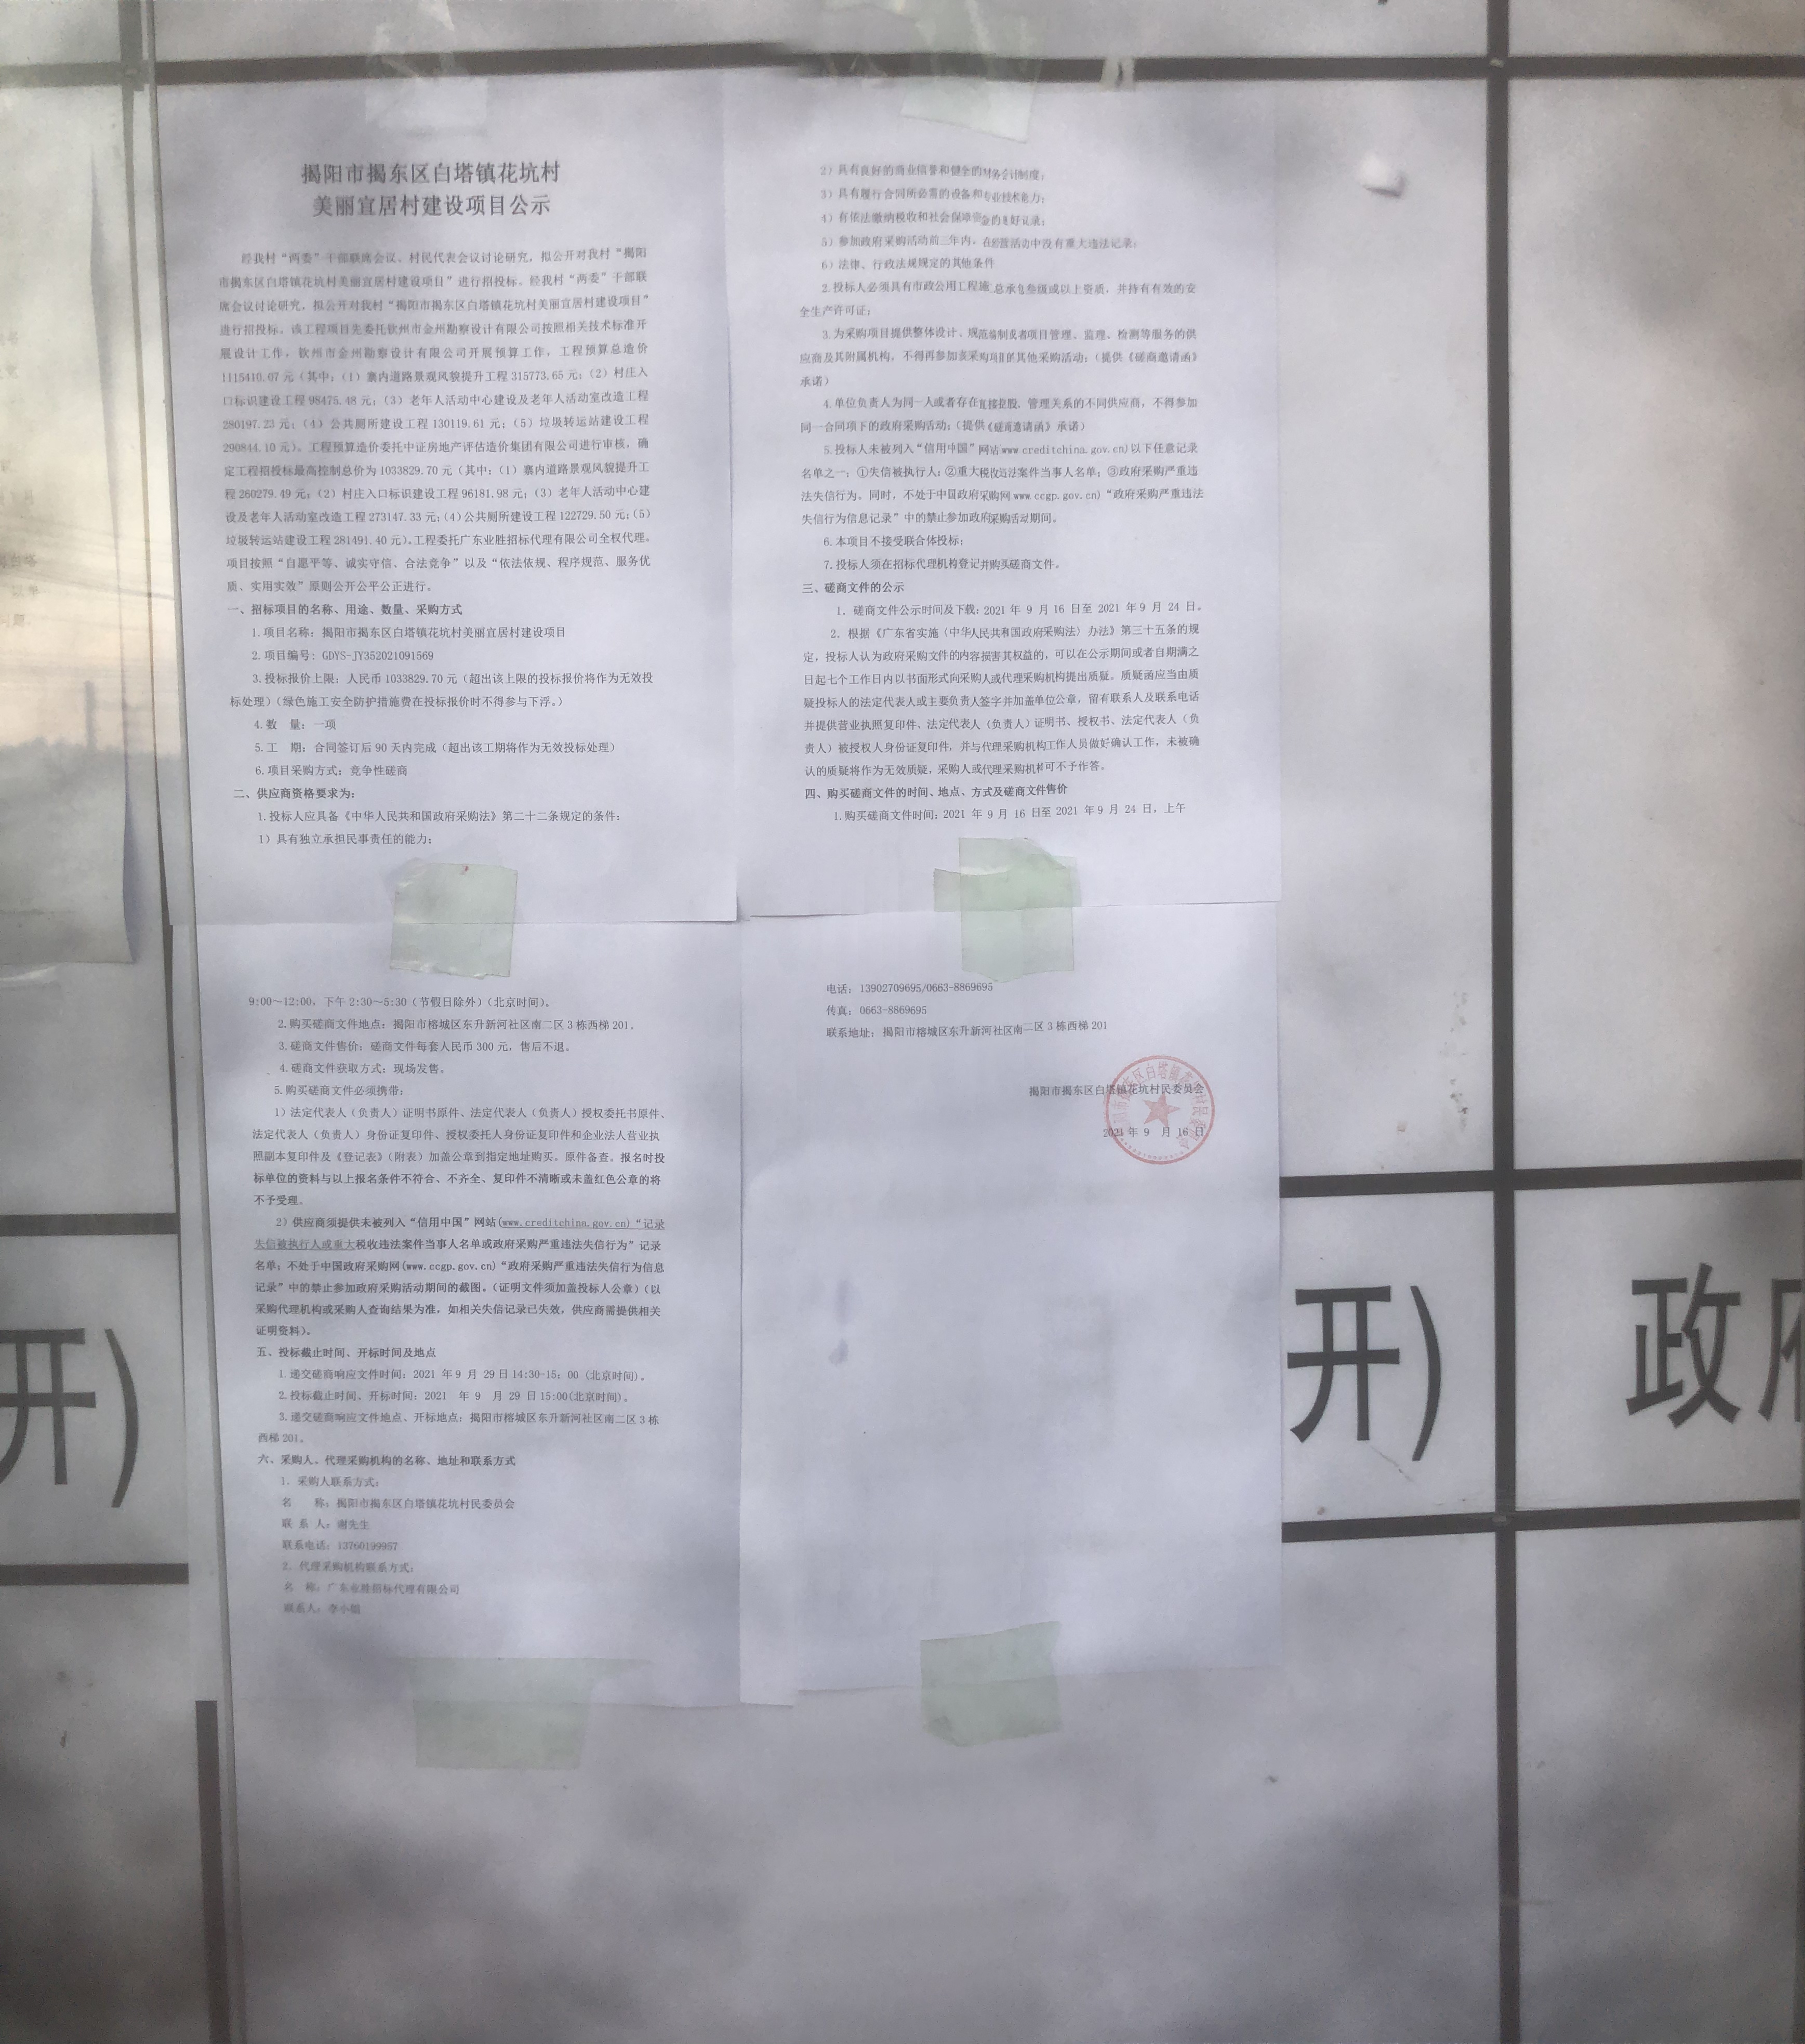 揭阳市揭东区白塔镇花坑村
美丽宜居村建设项目公示
经我村“两委”干部联席会议、村民代表会议讨论研究，拟公开对我村“揭阳
市揭东区白塔镇花坑村美丽宜居村建设项目”进行招投标。经我村“两委”干部联
席会议讨论研究，拟公开对我村“揭阳市揭东区白塔镇花坑村美丽宜居村建设项目”
进行招投标。该工程项目先委托钦州市金州勘察设计有限公司按照相关技术标准开
展设计工作，钦州市金州勘察设计有限公司开展预算工作，工程预算总造价
1115410.07 元（其中：（1）寨内道路景观风貌提升工程 315773.65 元；（2）村庄入
口标识建设工程 98475.48 元；（3）老年人活动中心建设及老年人活动室改造工程
280197.23 元；（4）公共厕所建设工程 130119.61 元；（5）垃圾转运站建设工程
290844.10 元）。工程预算造价委托中证房地产评估造价集团有限公司进行审核，确
定工程招投标最高控制总价为 1033829.70 元（其中：（1）寨内道路景观风貌提升工
程 260279.49 元；（2）村庄入口标识建设工程 96181.98 元；（3）老年人活动中心建
设及老年人活动室改造工程 273147.33 元；（4）公共厕所建设工程 122729.50 元；（5）
垃圾转运站建设工程 281491.40 元）。工程委托广东业胜招标代理有限公司全权代理。
项目按照“自愿平等、诚实守信、合法竞争”以及“依法依规、程序规范、服务优
质、实用实效”原则公开公平公正进行。
一、招标项目的名称、用途、数量、采购方式
1.项目名称：揭阳市揭东区白塔镇花坑村美丽宜居村建设项目
2.项目编号：GDYS-JY352021091569
3.投标报价上限：人民币 1033829.70 元（超出该上限的投标报价将作为无效投
标处理）（绿色施工安全防护措施费在投标报价时不得参与下浮。）
4.数　量：一项
5.工　期：合同签订后 90 天内完成（超出该工期将作为无效投标处理）
6.项目采购方式：竞争性磋商
二、供应商资格要求为：
1.投标人应具备《中华人民共和国政府采购法》第二十二条规定的条件：
1）具有独立承担民事责任的能力；
2）具有良好的商业信誉和健全的财务会计制度；
3）具有履行合同所必需的设备和专业技术能力；
4）有依法缴纳税收和社会保障资金的良好记录；
5）参加政府采购活动前三年内，在经营活动中没有重大违法记录；
6）法律、行政法规规定的其他条件
2.投标人必须具有市政公用工程施 总承包叁级或以上资质，并持有有效的安
全生产许可证；
3.为采购项目提供整体设计、规范编制或者项目管理、监理、检测等服务的供
应商及其附属机构，不得再参加该采购项目的其他采购活动；（提供《磋商邀请函》
承诺）
4.单位负责人为同一人或者存在直接控股、管理关系的不同供应商，不得参加
同一合同项下的政府采购活动；（提供《磋商邀请函》承诺）
5.投标人未被列入“信用中国”网站 www.creditchina.gov.cn)以下任意记录
名单之一：①失信被执行人；②重大税收违法案件当事人名单；③政府采购严重违
法失信行为。同时，不处于中国政府采购网 www.ccgp.gov.cn)“政府采购严重违法
失信行为信息记录”中的禁止参加政府采购活动期间。
6.本项目不接受联合体投标；
7.投标人须在招标代理机构登记并购买磋商文件。
三、磋商文件的公示
1．磋商文件公示时间及下载：2021 年 9 月 16 日至 2021 年 9 月 24 日。
2．根据《广东省实施〈中华人民共和国政府采购法〉办法》第三十五条的规
定，投标人认为政府采购文件的内容损害其权益的，可以在公示期间或者自期满之
日起七个工作日内以书面形式向采购人或代理采购机构提出质疑。质疑函应当由质
疑投标人的法定代表人或主要负责人签字并加盖单位公章，留有联系人及联系电话
并提供营业执照复印件、法定代表人（负责人）证明书、授权书、法定代表人（负
责人）被授权人身份证复印件，并与代理采购机构工作人员做好确认工作，未被确
认的质疑将作为无效质疑，采购人或代理采购机构可不予作答。
四、购买磋商文件的时间、地点、方式及磋商文件售价
1.购买磋商文件时间：2021 年 9 月 16 日至 2021 年 9 月 24 日，上午
9:00～12:00，下午 2:30～5:30（节假日除外）（北京时间）。
2.购买磋商文件地点：揭阳市榕城区东升新河社区南二区 3 栋西梯 201。
3.磋商文件售价：磋商文件每套人民币 300 元，售后不退。
4.磋商文件获取方式：现场发售。
5.购买磋商文件必须携带：
1）法定代表人（负责人）证明书原件、法定代表人（负责人）授权委托书原件、
法定代表人（负责人）身份证复印件、授权委托人身份证复印件和企业法人营业执
照副本复印件及《登记表》（附表）加盖公章到指定地址购买。原件备查。报名时投
标单位的资料与以上报名条件不符合、不齐全、复印件不清晰或未盖红色公章的将
不予受理。
2）供应商须提供未被列入“信用中国”网站(www.creditchina.gov.cn)“记录
失信被执行人或重大税收违法案件当事人名单或政府采购严重违法失信行为”记录
名单；不处于中国政府采购网(www.ccgp.gov.cn)“政府采购严重违法失信行为信息
记录”中的禁止参加政府采购活动期间的截图。（证明文件须加盖投标人公章）（以
采购代理机构或采购人查询结果为准，如相关失信记录已失效，供应商需提供相关
证明资料）。
五、投标截止时间、开标时间及地点
1.递交磋商响应文件时间：2021 年 9 月 29 日 14:30-15：00 (北京时间)。
2.投标截止时间、开标时间：2021 年 9 月 29 日 15:00(北京时间)。
3.递交磋商响应文件地点、开标地点：揭阳市榕城区东升新河社区南二区 3 栋
西梯 201。
六、采购人、代理采购机构的名称、地址和联系方式
1．采购人联系方式：
名　　称：揭阳市揭东区白塔镇花坑村民委员会
联 系 人：谢先生
联系电话：13760199957
2．代理采购机构联系方式：
名　称：广东业胜招标代理有限公司
联系人：李小姐
电话：13902709695/0663-8869695
传真：0663-8869695
联系地址：揭阳市榕城区东升新河社区南二区 3 栋西梯 201
揭阳市揭东区白塔镇花坑村民委员会
2021 年 9 月 16 日
开)
开)
政府